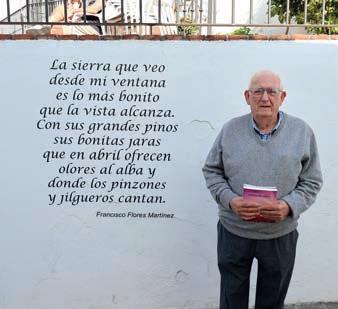 La sierra que veo
desde mi ventana
es lo más bonito
que la vista alcanza.
Con sus grandes pinos
sus bonitas jaras
que en abril ofrecen
olores al alba y
donde los pinzones
y jilgueros cantan.
Francisco Flores Martínez